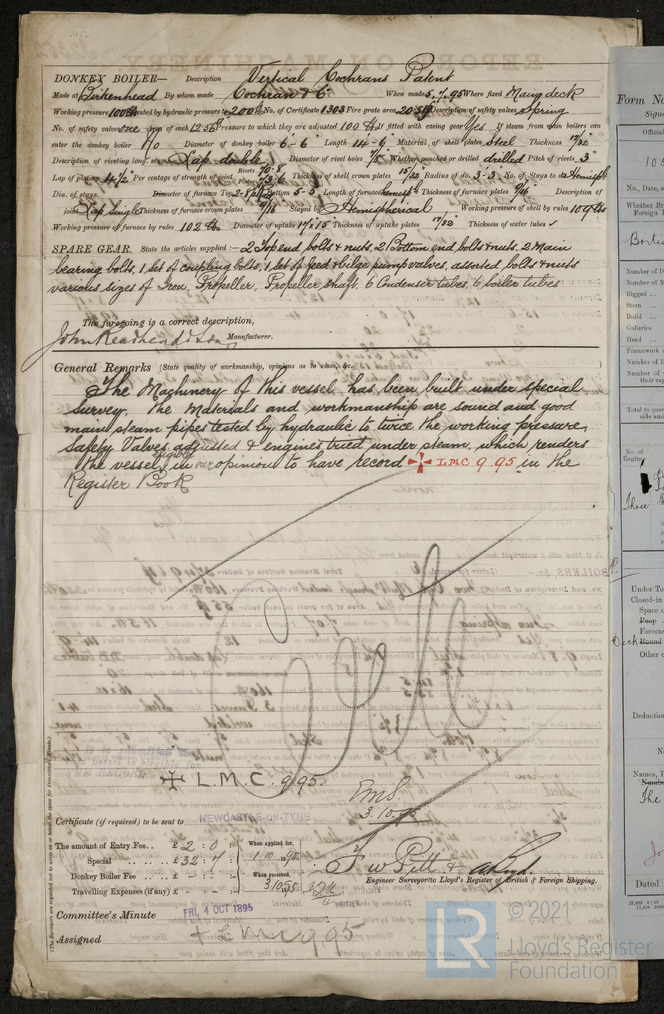 DONKEY BOILER— Description Vertical Cochrans Patent
Made at Birkenhead By whom made Cochran & Co When made 5.7.95 Where fixed Main deck
Working pressure 100 lbs tested by hydraulic pressure to 200 lbs No. of Certificate 1303 Fire grate area 20.5 Description of safety valves Spring
No. of safety valves one area of each 12.56 Pressure to which they are adjusted 100 lbs If fitted with easing gear Yes If steam from main boilers can
enter the donkey boiler No Diameter of donkey boiler 6'-6" Length 14'-6" Material of shell plates Steel Thickness 17/32
Description of riveting long. seams Lap double Diameter of rivet holes 7/8" Whether punched or drilled drilled Pitch of rivets 3"
Lap of plating 4 1/2" Per centage of strength of joint Rivets 70.8 Plates 73.6 Thickness of shell crown plates 17/32 Radius of do. 3'-3" No. of Stays to do Hemispl
Dia. of stays. Diameter of furnace Top Bottom 5'-5" Length of furnace Thickness of furnace plates 9/16" Description of
joint Lap Single Thickness of furnace crown plates 9/16 Stayed by Hemispherical Working pressure of shell by rules 109 lbs
Working pressure of furnace by rules 102 lbs Diameter of uptake Thickness of uptake plates 17/32 Thickness of water tubes
SPARE GEAR. State the articles supplied:— 2 Top end bolts & nuts, 2 Bottom end bolts & nuts, 2 Main
bearing bolts, 1 set of coupling bolts, 1 set of feed & bilge pump valves, assorted bolts & nuts
various sizes of Iron, Propeller, Propeller shaft, 6 Condenser tubes, 6 boiler tubes
The foregoing is a correct description,
John Readhead & Sons Manufacturer.
General Remarks (State quality of workmanship, opinions as to class, &c.)
The Machinery of this vessel has been built under special
survey. The materials and workmanship are sound and good
main steam pipes tested by hydraulic to twice the working pressure,
Safety Valves adjusted & engines tried under steam, which renders
the vessel eligible in our opinion to have record ✠ LMC 9.95 in the
Register Book
✠ L.M.C. 9.95.
3.10.95
(The Surveyors are requested not to write on or below the space for Committee's Minute.)
Certificate (if required) to be sent to NEWCASTLE-ON-TYNE
The amount of Entry Fee.. £ 2 : 0 : When applied for,
Special £ 32 : 7 : 1.10.95
Donkey Boiler Fee £ - : - : When received,
Travelling Expenses (if any) £ - : - : 3.10.95
F W Pitt & A Boyd
Engineer Surveyors to Lloyd's Register of British & Foreign Shipping.
Committee's Minute FRI. 4 OCT 1895
Assigned + LMC 9.95
LR © 2021
Lloyd's Register
Foundation
Form No
Signa
Official
No., Date, a
Whether Br
Foreign
Britis
Number of D
Number of M
Rigged
Stern
Build
Galleries
Head
Framework
Number of
Number of
their cap
Total to quar
side ami
No. of
Engine
Three
Under To
Closed-in
Space
Poop
Forecas
Deck Round
Other c
Deduction
No
Names,
Numbe
The
Dated